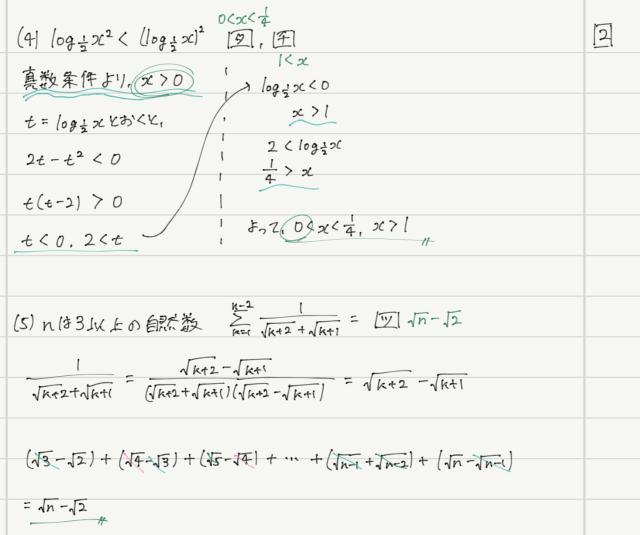 0<x<1/4
(4) log_{1/2} x² < (log_{1/2} x)² タ, チ
2
1<x
真数条件より, x>0
t = log_{1/2} x とおくと,
2t - t² < 0
t(t-2) > 0
t<0, 2<t
log_{1/2} x<0
x>1
2 < log_{1/2} x
1/4 > x
よって, 0<x<1/4, x>1
(5) nは3以上の自然数 Σ_{k=1}^{n-2} 1/(√(k+2)+√(k+1)) = ツ √n-√2
1/(√(k+2)+√(k+1)) = (√(k+2)-√(k+1))/((√(k+2)+√(k+1))(√(k+2)-√(k+1))) = √(k+2) - √(k+1)
(√3-√2)+(√4-√3)+(√5-√4)+…+(√(n-1)+√(n-2))+(√n-√(n-1))
= √n-√2